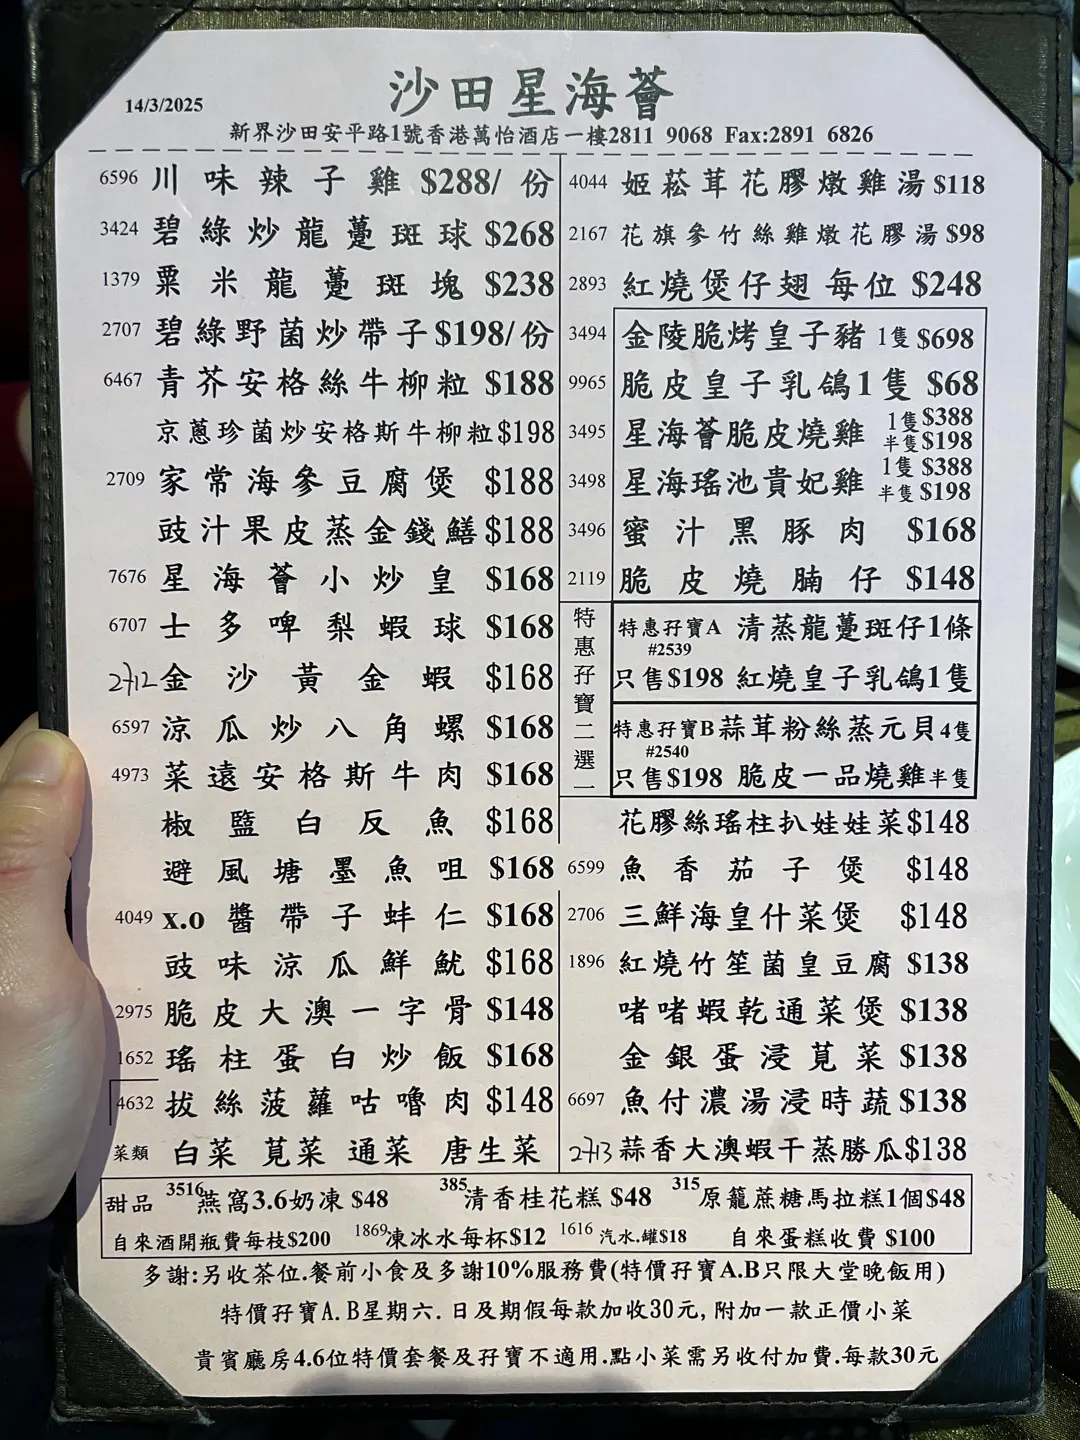 14/3/2025
沙田星海薈
新界沙田安平路1號香港萬怡酒店一樓2811 9068 Fax:2891 6826
6596 川味辣子雞 $288/份
3424 碧綠炒龍躉斑球 $268
1379 粟米龍躉斑塊 $238
2707 碧綠野菌炒帶子 $198/份
6467 青芥安格絲牛柳粒 $188
京蔥珍菌炒安格斯牛柳粒 $198
2709 家常海參豆腐煲 $188
豉汁果皮蒸金錢鱔 $188
7676 星海薈小炒皇 $168
6707 士多啤梨蝦球 $168
2712 金沙黃金蝦 $168
6597 涼瓜炒八角螺 $168
4973 菜遠安格斯牛肉 $168
椒鹽白反魚 $168
避風塘墨魚咀 $168
4049 x.o醬帶子蚌仁 $168
豉味涼瓜鮮魷 $168
2975 脆皮大澳一字骨 $148
1652 瑤柱蛋白炒飯 $168
4632 拔絲菠蘿咕嚕肉 $148
菜類 白菜 莧菜 通菜 唐生菜
4044 姬菘茸花膠燉雞湯 $118
2167 花旗參竹絲雞燉花膠湯 $98
2893 紅燒煲仔翅 每位 $248
3494 金陵脆烤皇子豬 1隻 $698
9965 脆皮皇子乳鴿1隻 $68
3495 星海薈脆皮燒雞 1隻$388 半隻$198
3498 星海瑤池貴妃雞 1隻$388 半隻$198
3496 蜜汁黑豚肉 $168
2119 脆皮燒腩仔 $148
特惠孖寶二選一
特惠孖寶A 清蒸龍躉斑仔1條
#2539
只售$198 紅燒皇子乳鴿1隻
特惠孖寶B 蒜茸粉絲蒸元貝4隻
#2540
只售$198 脆皮一品燒雞半隻
花膠絲瑤柱扒娃娃菜 $148
6599 魚香茄子煲 $148
2706 三鮮海皇什菜煲 $148
1896 紅燒竹笙菌皇豆腐 $138
啫啫蝦乾通菜煲 $138
金銀蛋浸莧菜 $138
6697 魚付濃湯浸時蔬 $138
2713 蒜香大澳蝦干蒸勝瓜 $138
甜品 3516燕窩3.6奶凍 $48 385清香桂花糕 $48 315原籠蔗糖馬拉糕1個$48
自來酒開瓶費每枝$200 1869凍冰水每杯$12 1616 汽水.罐$18 自來蛋糕收費 $100
多謝:另收茶位.餐前小食及多謝10%服務費(特價孖寶A.B只限大堂晚飯用)
特價孖寶A.B星期六.日及期假每款加收30元,附加一款正價小菜
貴賓廳房4.6位特價套餐及孖寶不適用.點小菜需另收付加費.每款30元